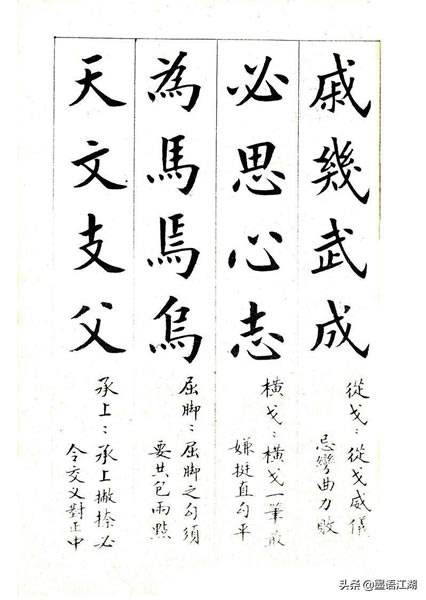 戚幾武成
從戈：從戈威儀
忌彎曲力敗
必思心志
橫戈：橫戈一筆最
嫌挺直勾平
為馬焉烏
屈脚：屈脚之勾須
要共包兩點
天文支父
承上：承上撇捺必
令交叉對正中
头条@墨语江湖